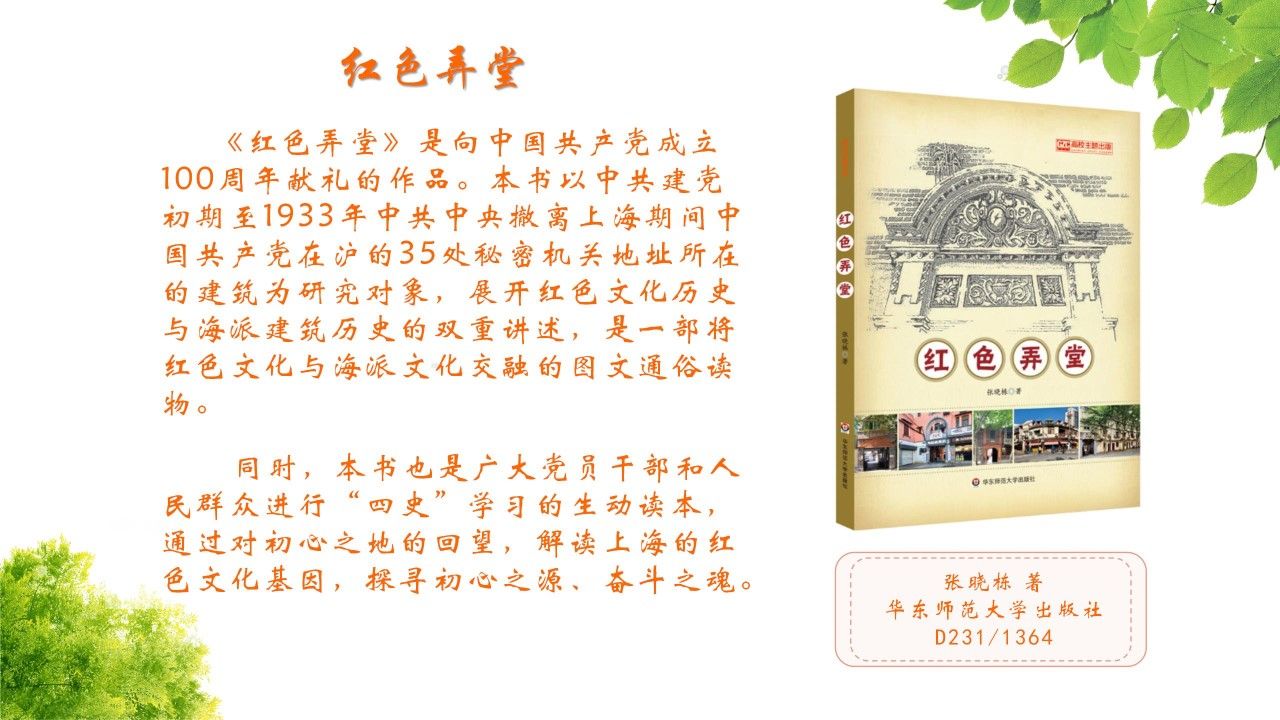 红色弄堂
《红色弄堂》是向中国共产党成立
100周年献礼的作品。本书以中共建党
初期至1933年中共中央撤离上海期间中
国共产党在沪的35处秘密机关地址所在
的建筑为研究对象，展开红色文化历史
与海派建筑历史的双重讲述，是一部将
红色文化与海派文化交融的图文通俗读
物。
同时，本书也是广大党员干部和人
民群众进行“四史”学习的生动读本，
通过对初心之地的回望，解读上海的红
色文化基因，探寻初心之源、奋斗之魂。
高校主题出版
红色弄堂
张晓栋◎著
华东师范大学出版社
红色弄堂
张晓栋◎著
华东师范大学出版社
张晓栋 著
华东师范大学出版社
D231/1364